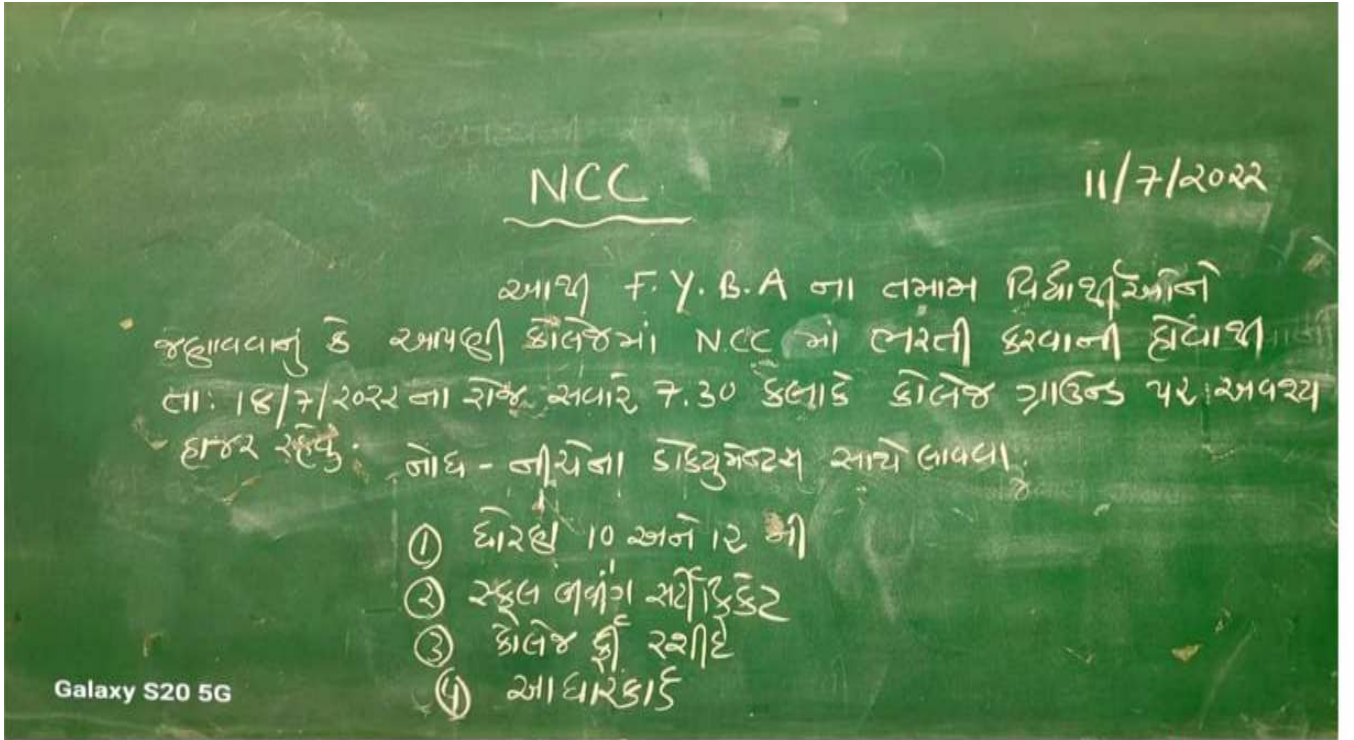 NCC
11/7/૨૦૨૨
આથી F.Y.B.A ના તમામ વિદ્યાર્થીઓને
જણાવવાનું કે આપણી કોલેજમાં N.CC માં ભરતી કરવાની હોવાથી
તા: ૧૪/7/૨૦૨૨ ના રોજ સવારે 7.30 કલાકે કોલેજ ગ્રાઉન્ડ પર અવશ્ય
હાજર રહેવું.
નોધ - નીચેના ડોક્યુમેન્ટસ સાથે લાવવા.
① ધોરણ 10 અને 1૨ ની
② સ્કુલ લીવીંગ સર્ટીફિકેટ
③ કોલેજ ફી રશીદ
④ આધારકાર્ડ
Galaxy S20 5G